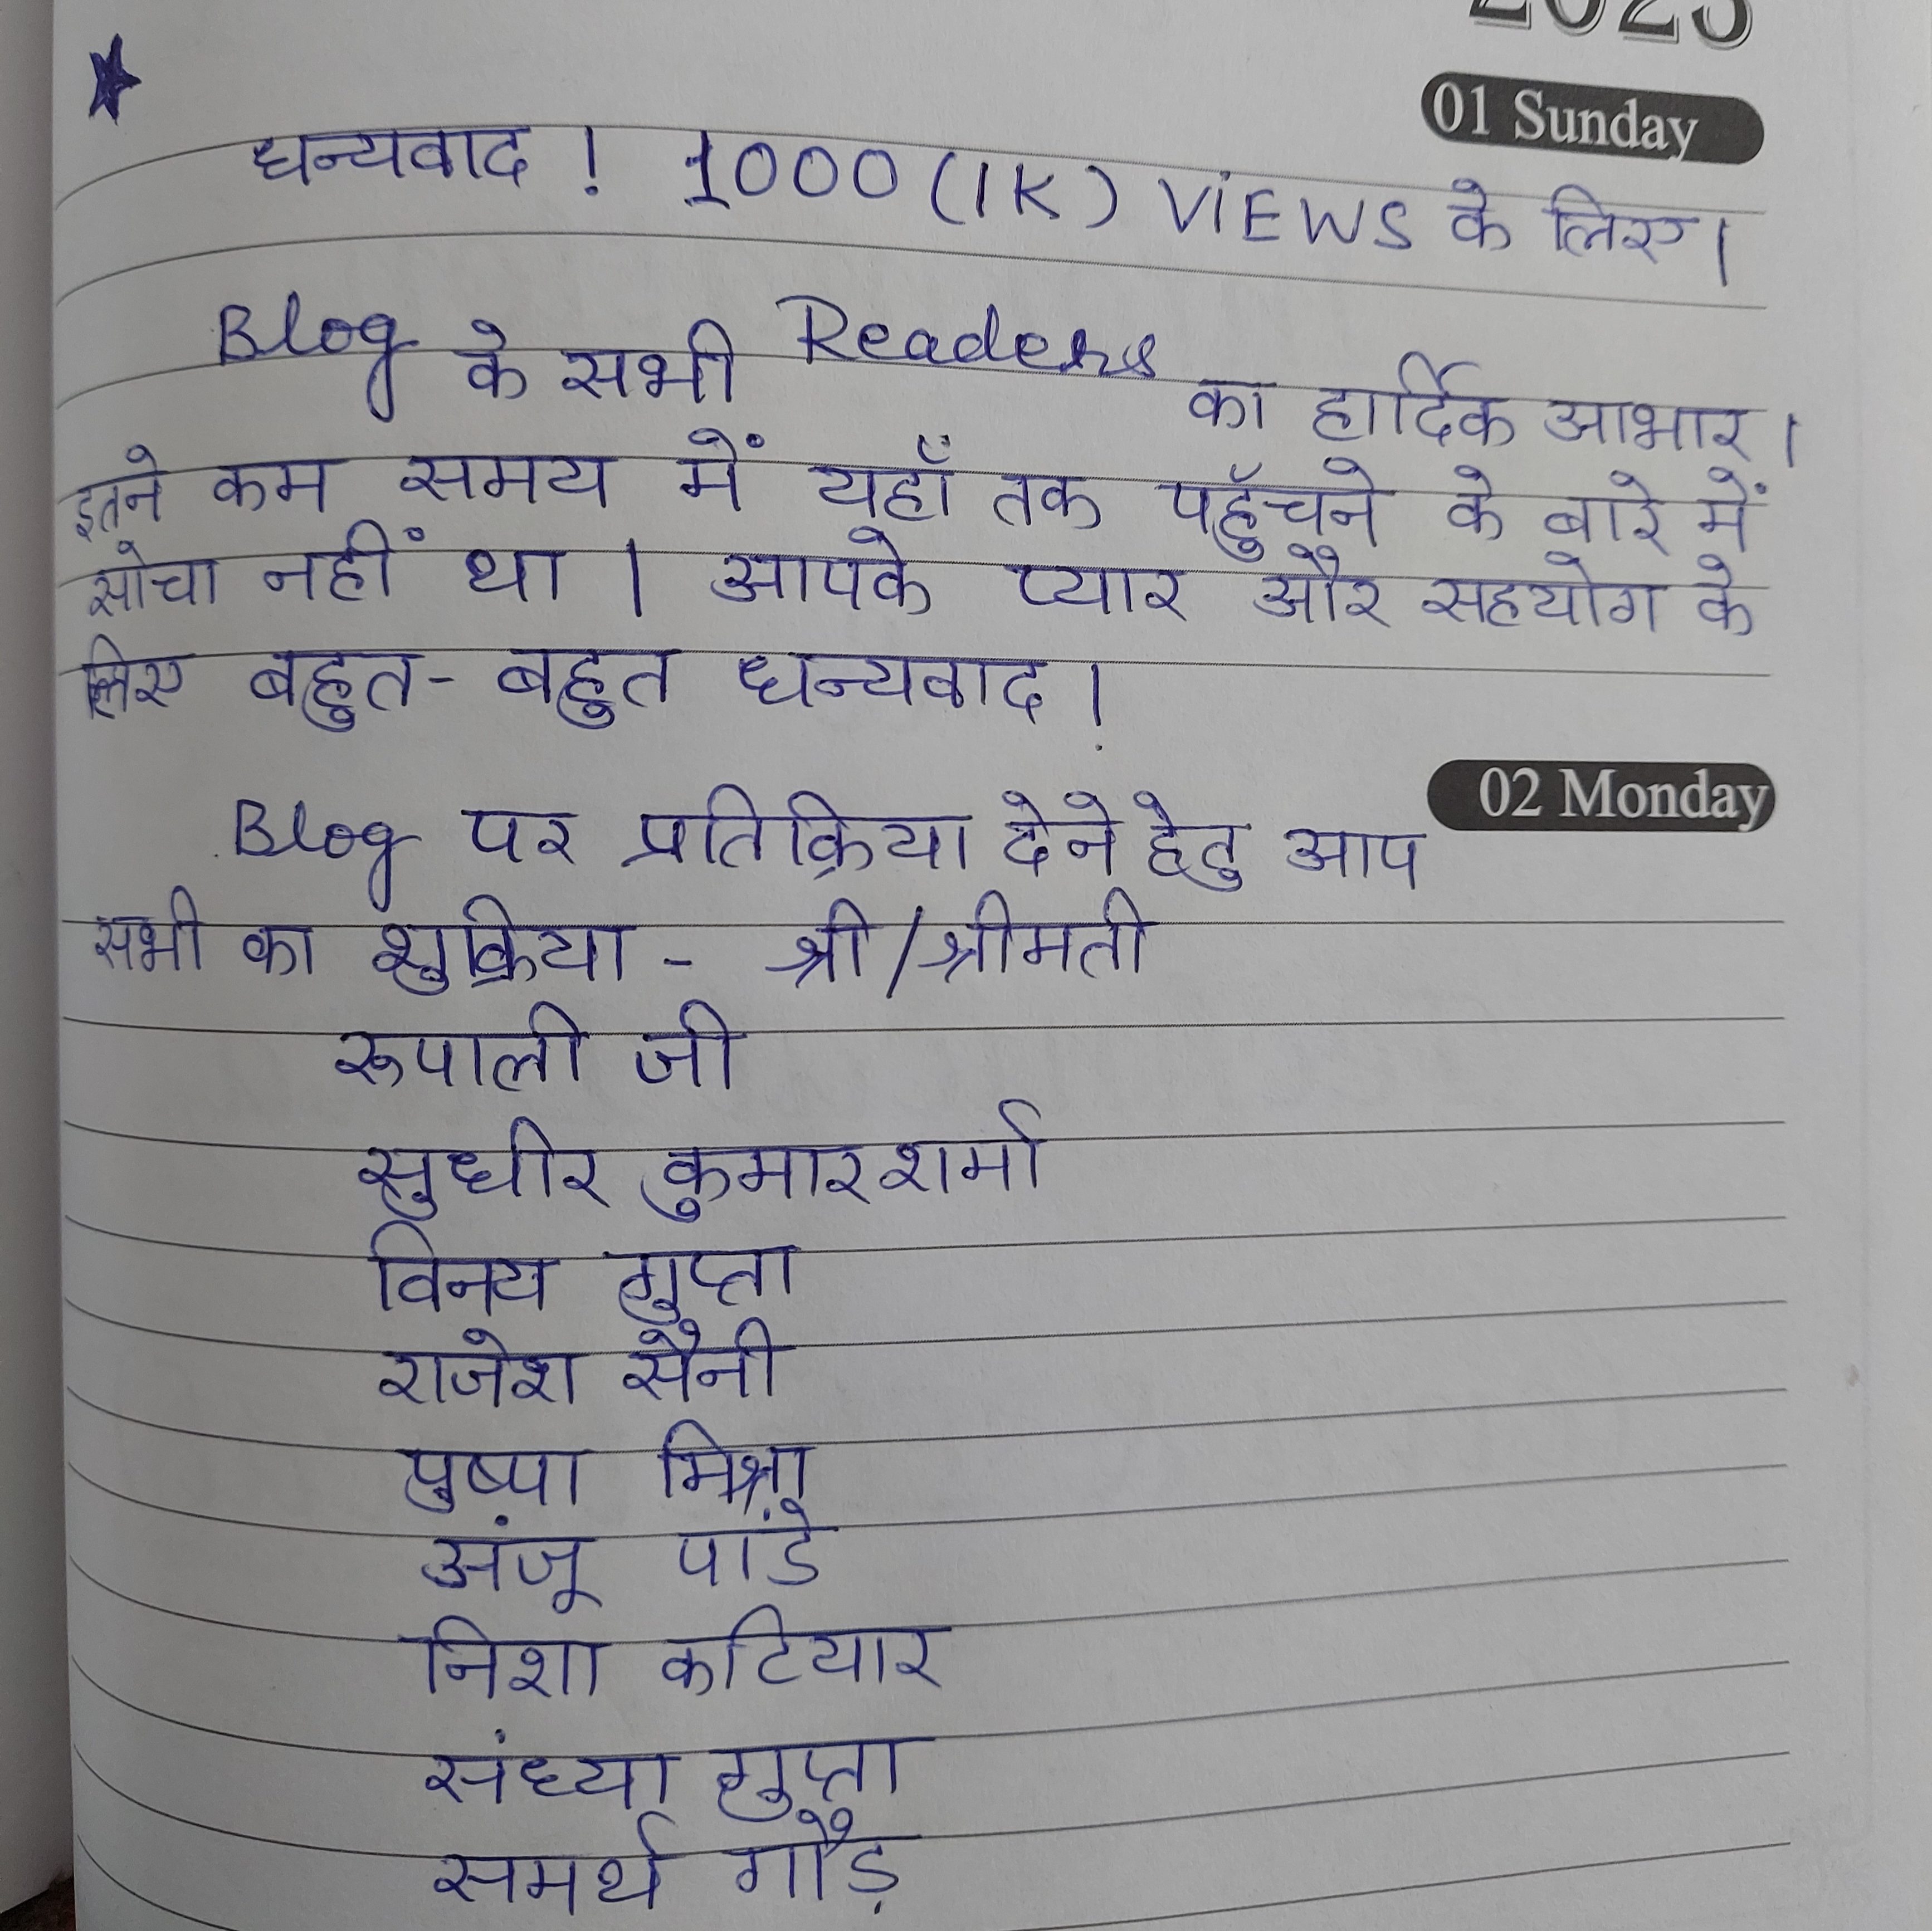 2023
01 Sunday
धन्यवाद ! 1000 (1K) ViEWS के लिए।
Blog के सभी Readers का हार्दिक आभार।
इतने कम समय में यहाँ तक पहुँचने के बारे में
सोचा नहीं था। आपके प्यार और सहयोग के
लिए बहुत-बहुत धन्यवाद !
02 Monday
Blog पर प्रतिक्रिया देने हेतु आप
सभी का शुक्रिया - श्री/श्रीमती
रूपाली जी
सुधीर कुमार शर्मा
विनय गुप्ता
राजेश सैनी
पुष्पा मिश्रा
अंजू पांडे
निशा कटियार
संध्या गुप्ता
समर्थ गौड़